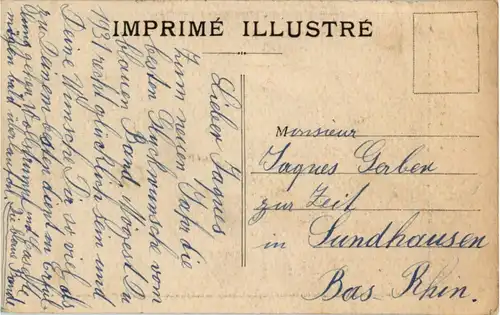 IMPRIMÉ ILLUSTRÉ
Lieber Jaques
Zum neuen Jahr die
besten Glückwünsche vom
blauen Band. Mögest Du
1931 recht glücklich sein und
Deine Wünsche Dir so viel als
zu Deinem besten dient in Erfül-
lung gehen.
mögen bald
Monsieur
Jaques Gerber
zur Zeit
in Sundhausen
Bas Rhin.